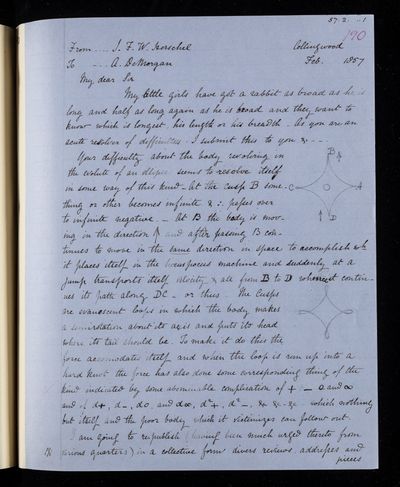 57.2. -1
190
From .... J. F. W. Herschel Collingwood
To --- A. DeMorgan Feb. 1857
My dear Sir
My little girls have got a rabbit as broad as he is
long and half as long again as he is broad and they want to
know which is longest, his length or his breadth - As you are an
acute resolver of difficulties I submit this to you &c --
Your difficulty about the body revolving in
the evolute of an ellipse seems to resolve itself
in some way of this kind - At the cusp B some-
thing or other becomes infinite & ∴ passes over
to infinite negative. - At B the body is mov-
ing in the direction ↑ and after passing B con-
tinues to move in the same direction in space to accomplish wh
it places itself in the machine and suddenly at a
jump transports itself velocity & all from B to D whence it contin-
ues its path along DC - or thus. The Cusps
are evanescent loops in which the body makes
a semirotation about its axis and puts its head
where its tail should be. To make it do this the
force accomodates itself and when the loop is run up into a
hard knot the force has also done some corresponding thing of the
kind indicated by some abominable complication of + - 0 and ∞
and of d+, d-, d0, and d∞, d²+, d²-. &c &c - &c - which nothing
but itself and the poor body which it victimizes can follow out
I am going to republish (having been much urged thereto from
various quarters) in a collective form divers reviews, addresses and
pieces
B
C
A
D